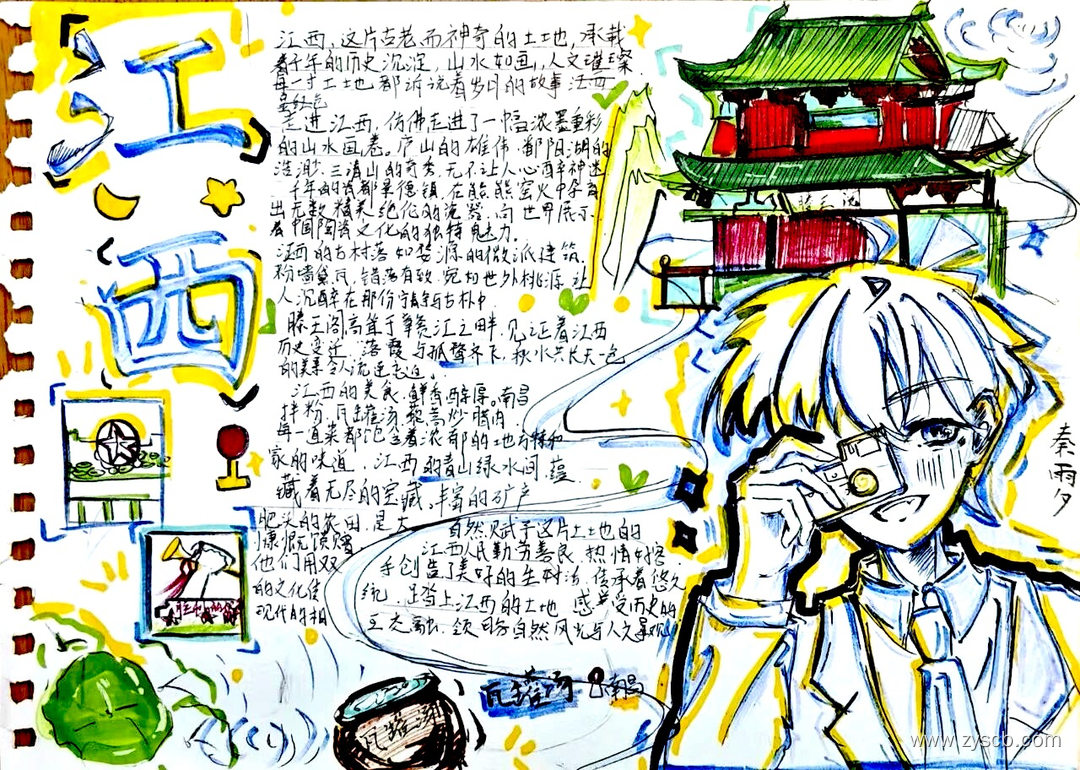 江西
江西,这片古老而神奇的土地,承载
着千年的历史沉淀,山水如画,人文璀璨
每一寸土地都诉说着岁月的故事江西
走进江西,仿佛走进了一幅浓墨重彩
的山水画卷。庐山的雄伟,鄱阳湖的
浩渺,三清山的奇秀,无不让人心醉神迷
千年的瓷都景德镇,在熊熊窑火中孕育
出无数精美绝伦的瓷器,向世界展示
着中国陶瓷文化的独特魅力.
江西的古村落如婺源的徽派建筑.
粉墙黛瓦,错落有致,宛如世外桃源,让
人沉醉在那份宁静与古朴中.
滕王阁,高耸于赣江之畔,见证着江西
历史变迁,落霞与孤鹜齐飞,秋水共长天一色
的美景令人流连忘返。
江西的美食,鲜香醇厚。南昌
拌粉,瓦罐汤,藜蒿炒腊肉,
每一道菜都饱含着浓郁的地方特和
家的味道,江西的青山绿水间,蕴
藏着无尽的宝藏,丰富的矿产
肥沃的农田,是大
自然赋予这片土地的
慷慨馈赠
江西人民勤劳善良,热情好客.
他们用双
手创造了美好的生活,传承着悠久
的文化传
统,踏上江西的土地,感受历史与
现代的相
互交融,领略自然风光与人文景观
滕王阁
秦雨夕
瓦罐汤
瓦罐汤 南昌
www.zyscb.com